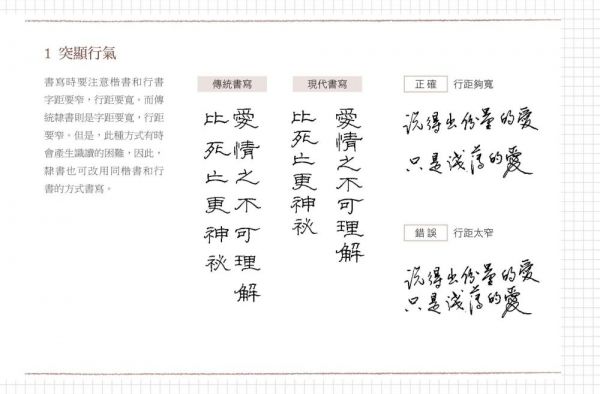 1 突顯行氣
書寫時要注意楷書和行書
字距要窄，行距要寬，而傳
統隸書則是字距要寬，行距
要窄。但是，此種方式有時
會產生識讀的困難，因此，
隸書也可改用同楷書和行
書的方式書寫。
傳統書寫
愛情之不可理解
比死亡更神祕
現代書寫
愛情之不可理解
比死亡更神祕
正確 行距夠寬
說得出份量的愛
只是淺薄的愛
錯誤 行距太窄
說得出份量的愛
只是淺薄的愛